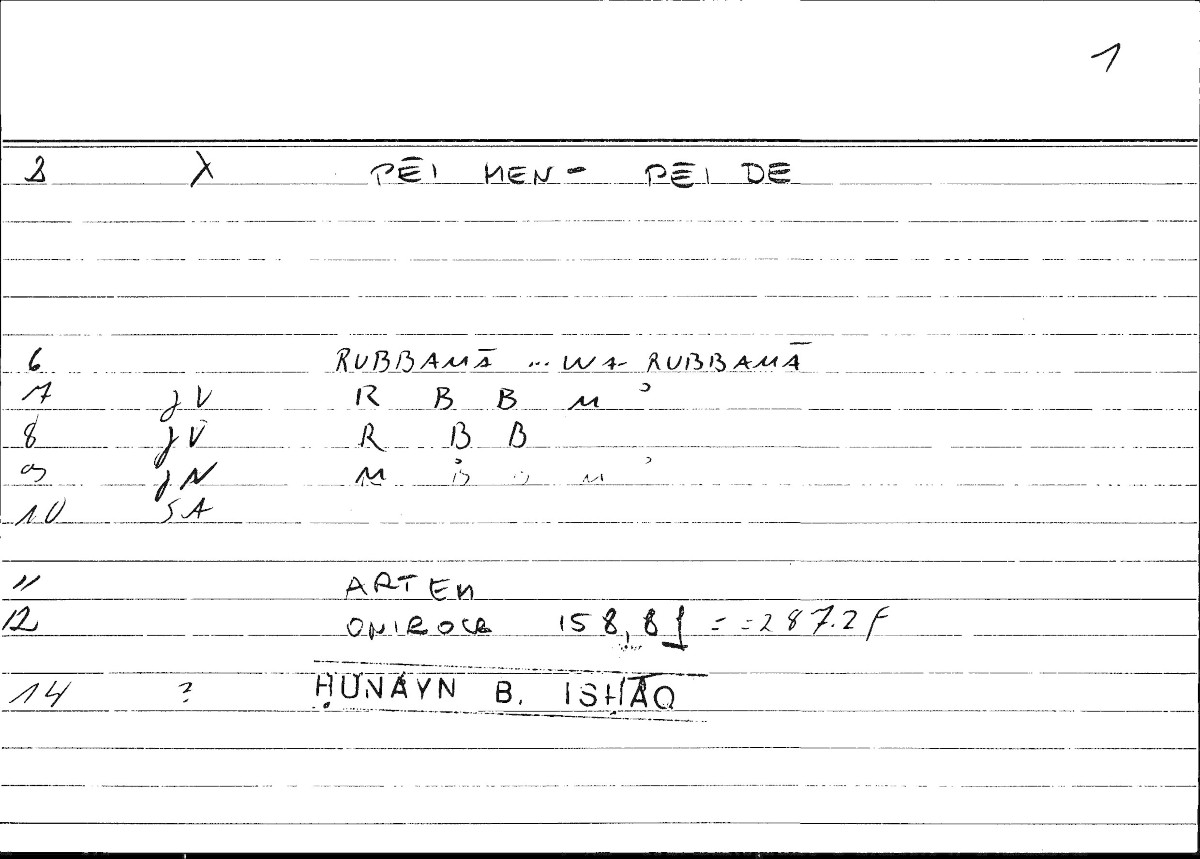 1
2 λ PĒI MEN - PĒI DE
6 RUBBAMĀ ... WA-RUBBAMĀ
7 JV R B B M ʾ
8 JV R B B
9 JN M B B M ʾ
10 SA
11 ARTEM
12 ONIROCR 158,8f = 287.2f
14 ? ḤUNAYN B. ISḤĀQ